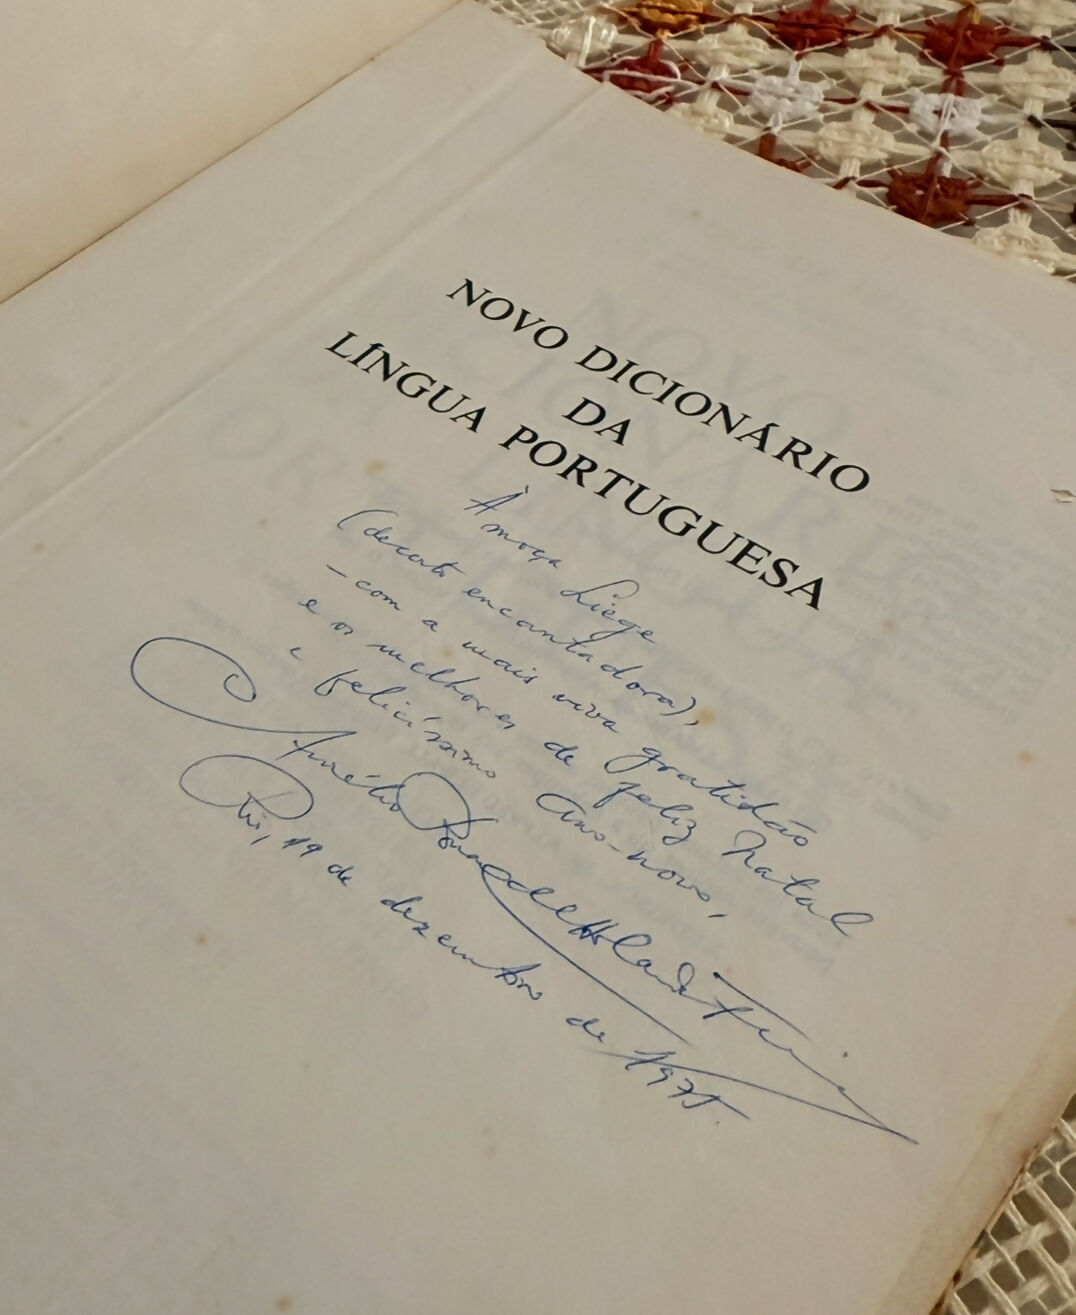 NOVO DICIONÁRIO
DA
LÍNGUA PORTUGUESA
À moça Liège
(decerto encantadora),
– com a mais viva gratidão
e os melhores de feliz Natal
e felicíssimo Ano-novo,
Aurélio Buarque de Hollanda Ferreira
Rio, 19 de dezembro de 1975.